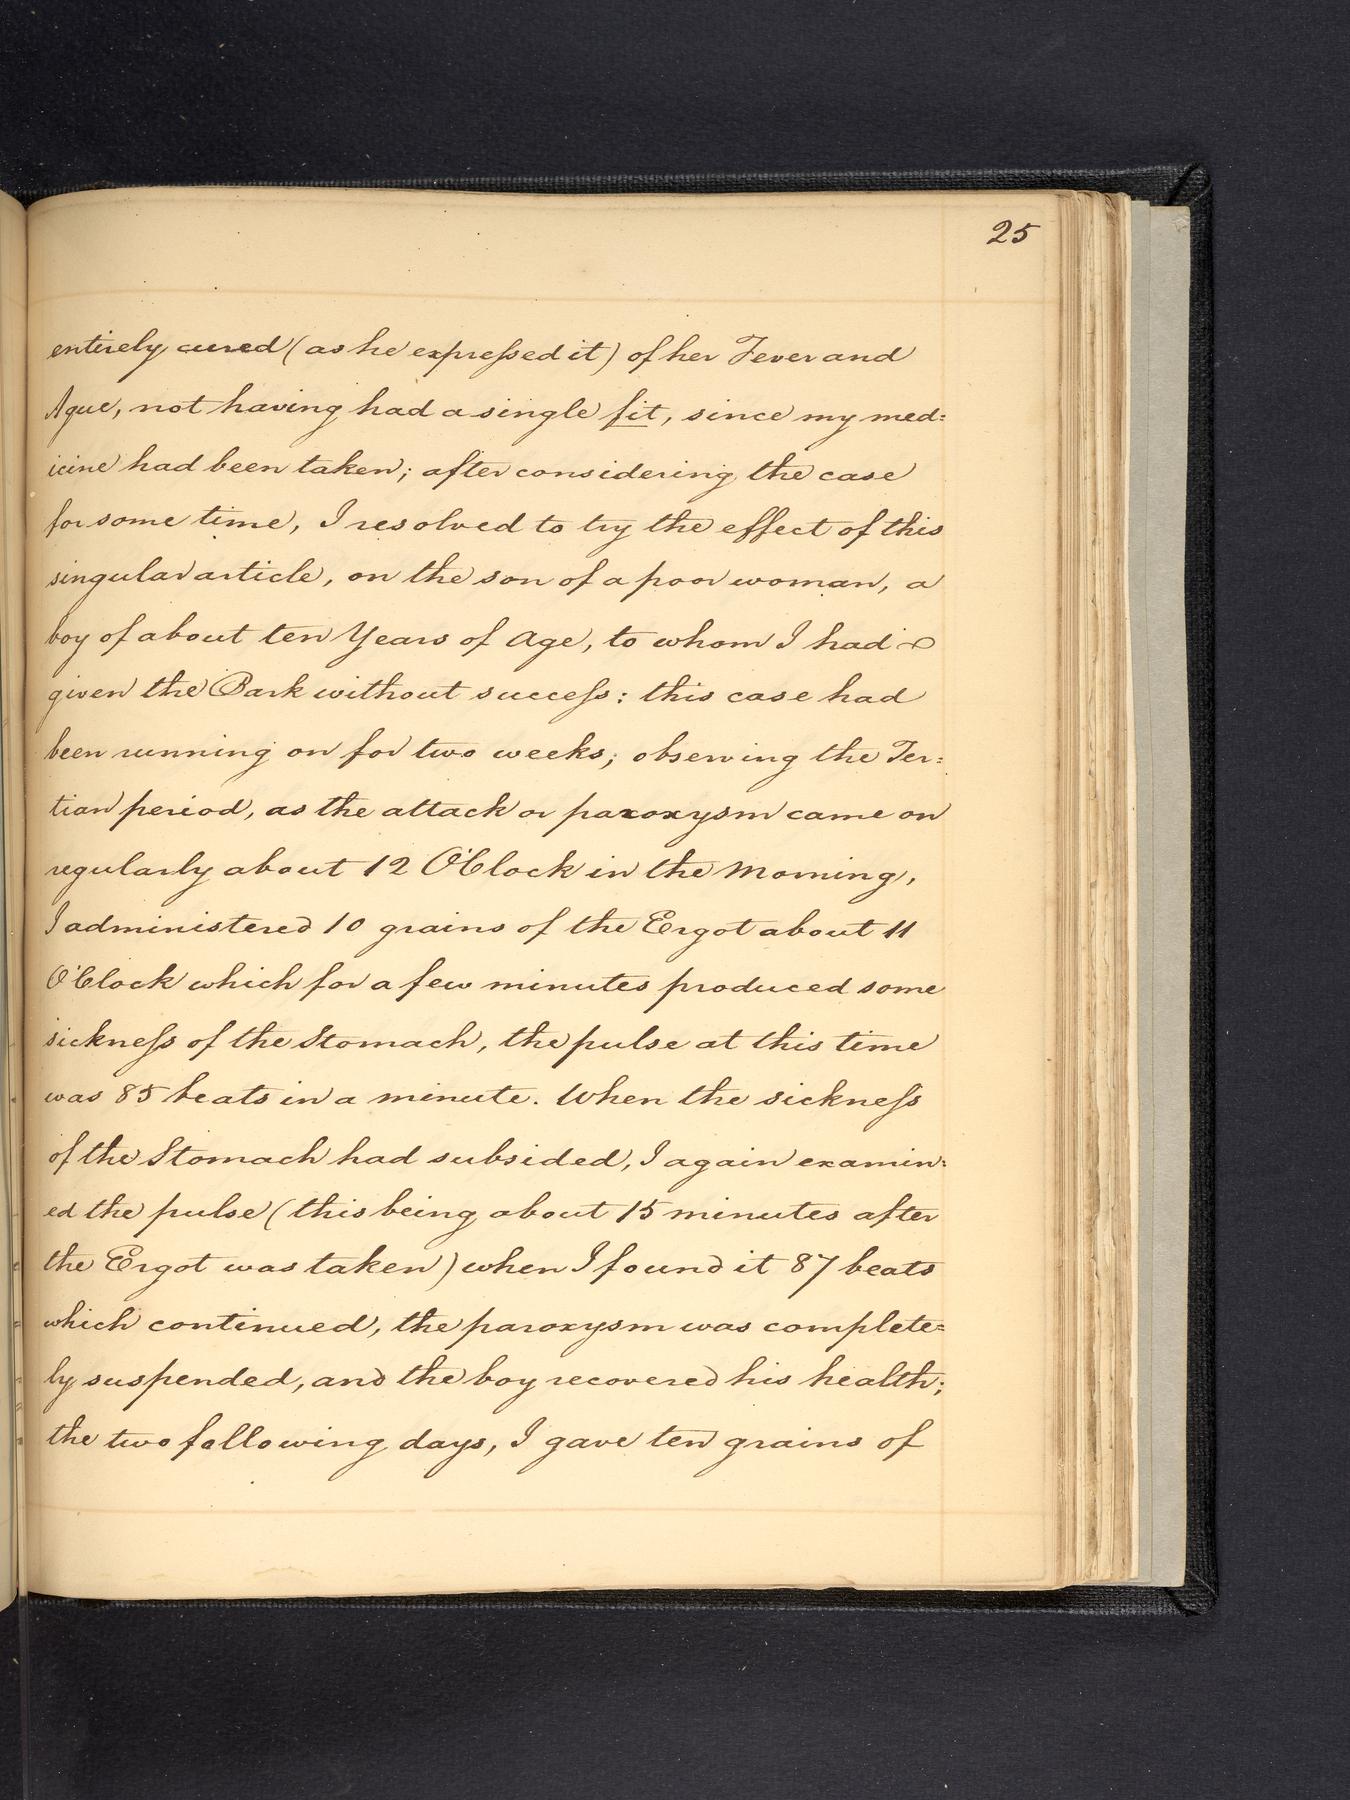 25
entirely cured (as he expreſsed it) of her Fever and
Ague, not having had a single fit, since my med=
icine had been taken; after considering the case
for some time, I resolved to try the effect of this
singular article, on the son of a poor woman, a
boy of about ten Years of Age, to whom I had
given the Bark without succeſs: this case had
been running on for two weeks; observing the Ter=
tian period, as the attack or paroxysm came on
regularly about 12 O'Clock in the Morning,
I administered 10 grains of the Ergot about 11
O'Clock which for a few minutes produced some
sickneſs of the Stomach, the pulse at this time
was 85 beats in a minute. When the sickneſs
of the Stomach had subsided, I again examin=
ed the pulse (this being about 15 minutes after
the Ergot was taken) when I found it 87 beats
which continued, the paroxysm was complete=
ly suspended, and the boy recovered his health;
the two following days, I gave ten grains of